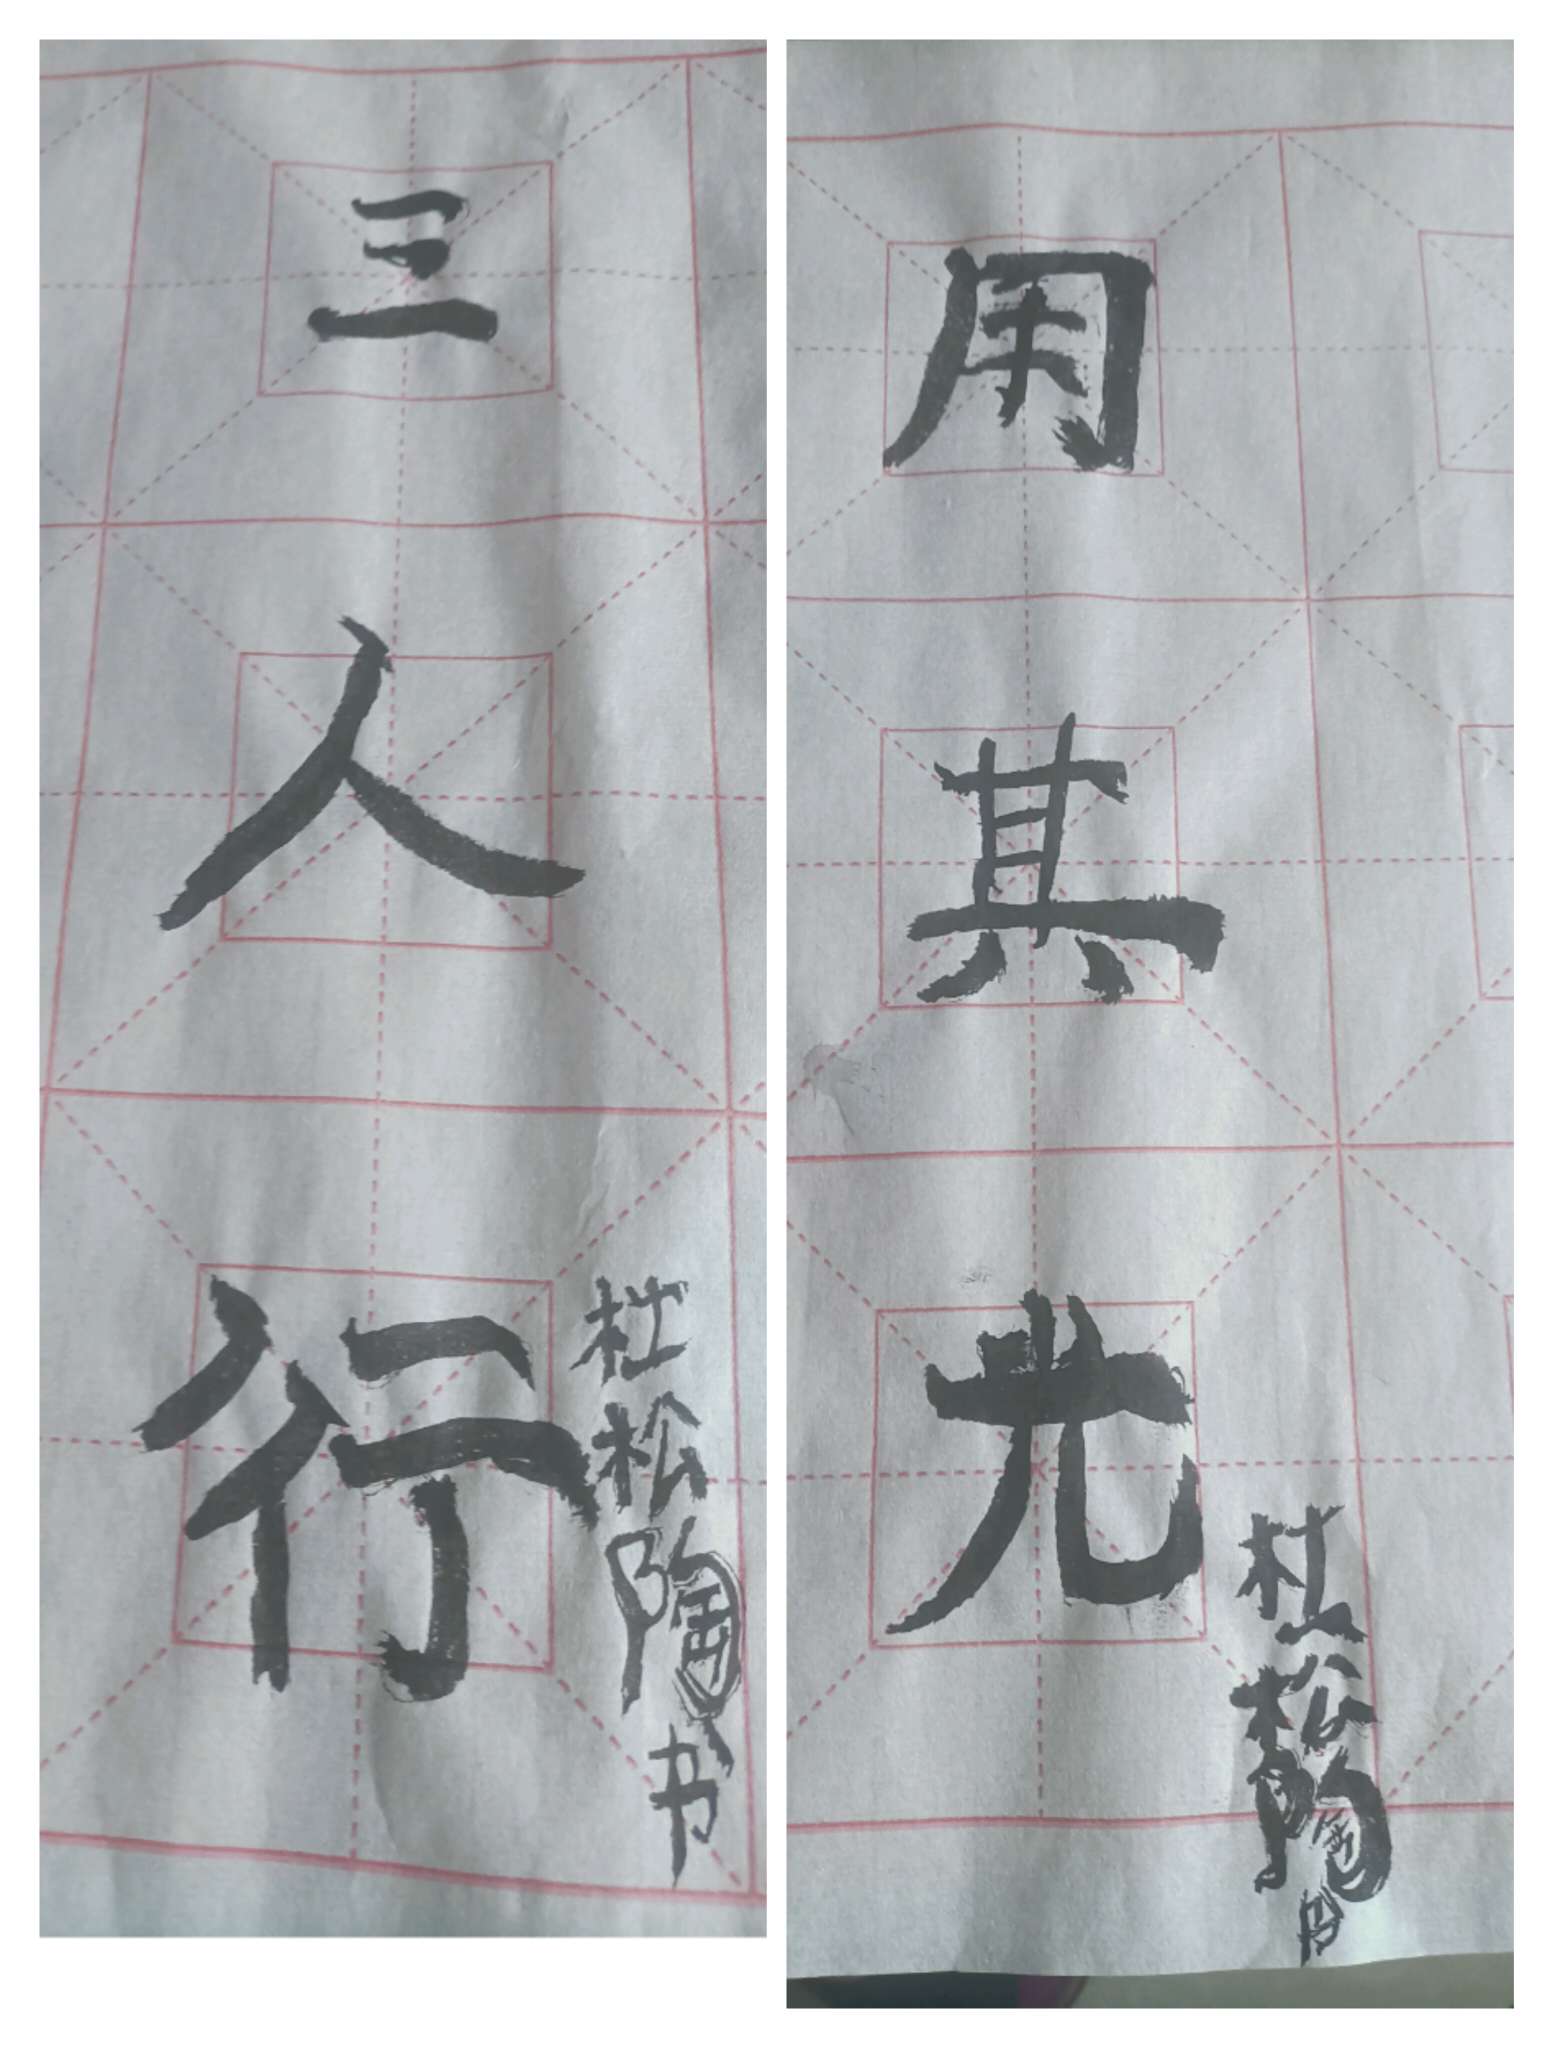 三人行
杜松陶书
用其
杜松陶书